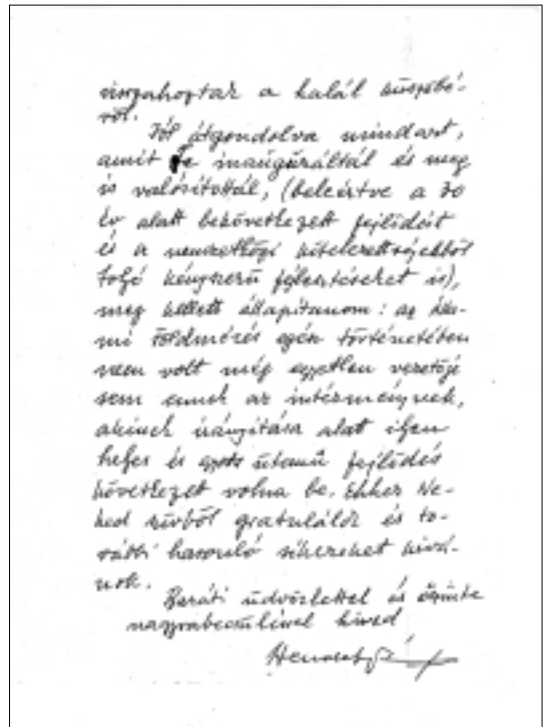 visszahoztak a halál küszöbé-
ről.
Jól átgondolva mindazt,
amit Te inauguráltál és meg
is valósítottál, (beleértve a 30
év alatt bekövetkezett fejlődést
és a nemzetközi kötelezettségekből
folyó kényszerű fejlesztéseket is),
meg kellett állapítanom: az álla-
mi földmérés egész történetében
nem volt még egyetlen vezetője
sem ennek az intézménynek,
akinek irányítása alatt ilyen
helyes és gyors ütemű fejlődés
következett volna be. Ehhez Ne-
ked szívből gratulálok és to-
vábbi hasonló sikereket kívá-
nok.
Baráti üdvözlettel és őszinte
nagyrabecsüléssel híved